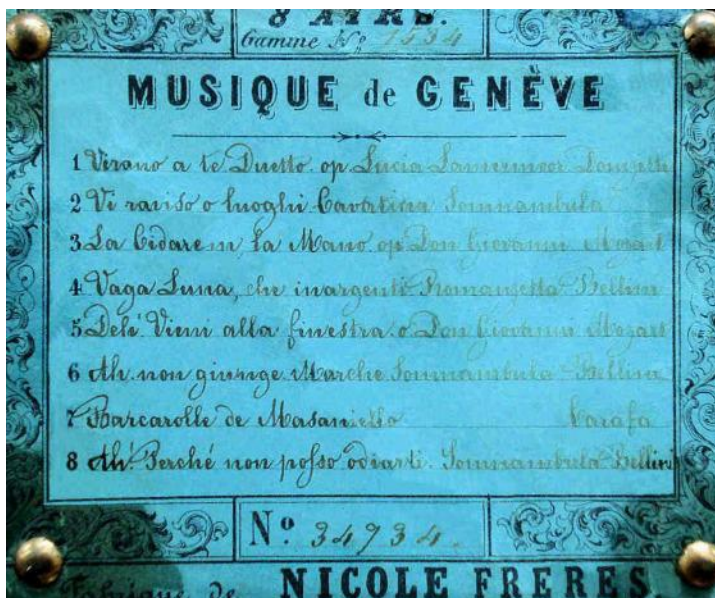 8 AIRS.
Gamme No 1534
MUSIQUE de GENÈVE
1 Virano a te Duetto op Lucia Lamermoor
2 Vi raviso o luoghi Cavatina Somnambula
3 La Cidarem la Mano op Don Giovanni Mozart
4 Vaga Luna, che inargenti Romanzetta Bellini
5 Deh! Vieni alla finestra o Don Giovanni Mozart
6 Ah non giunge Marche Somnambula Bellini
7 Barcarolle de Masaniello Carafa
8 Ah! Perché non posso odiarti. Somnambula Bellini
No. 34934.
Fabrique de NICOLE FRERES.